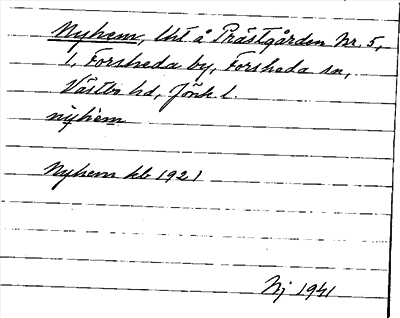 Nyhem, lht å Prästgården Nr. 5,
1, Forsheda by, Forsheda sn,
Västbo hd, Jönk l.
nỳhèm
Nyhem kb 1921
Nj 1941